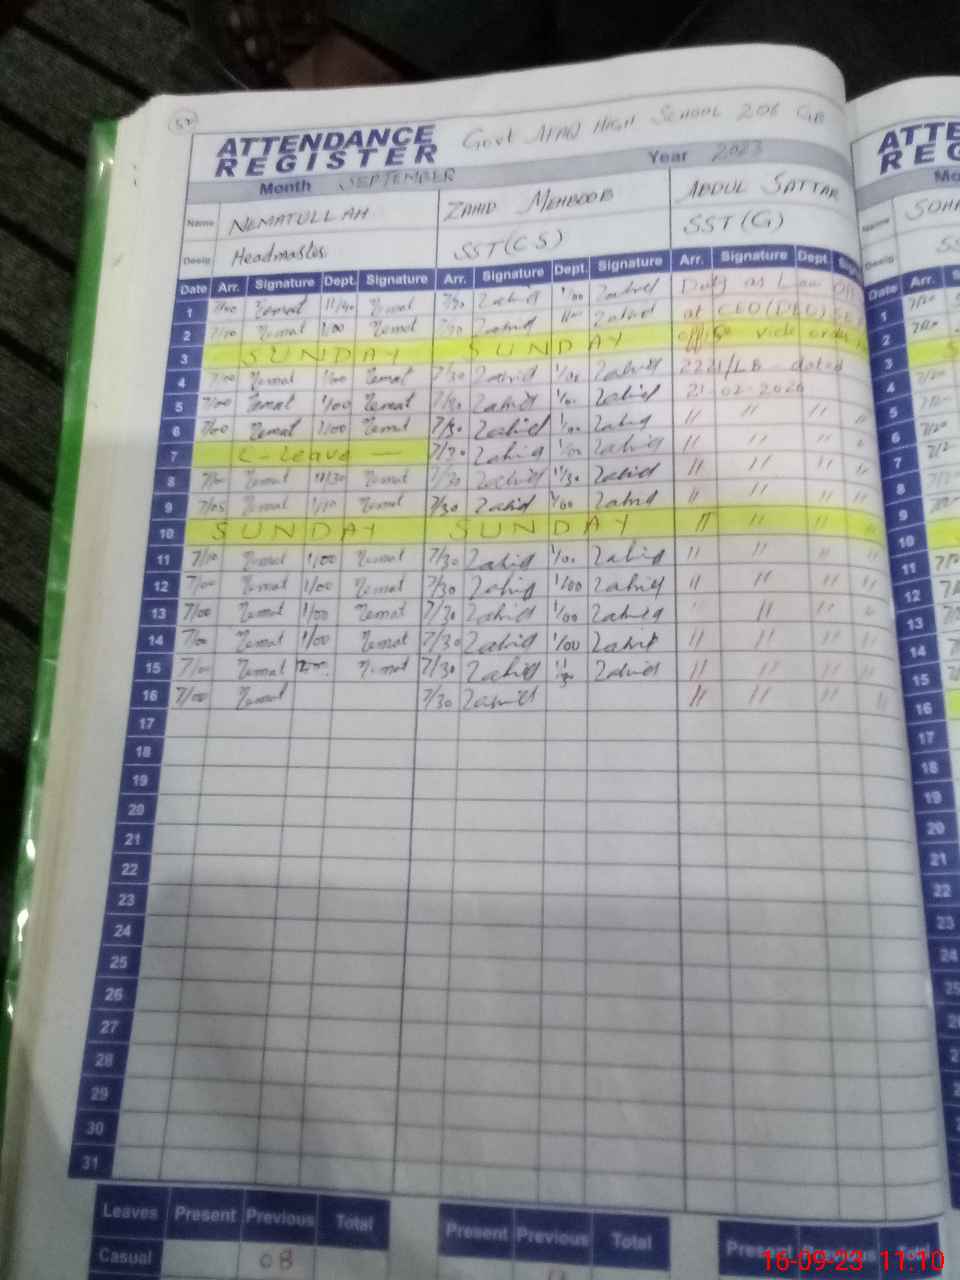 52
ATTENDANCE
REGISTER
Govt AFAQ HIGH SCHOOL 206 GB
Month SEPTEMBER Year 2023
Name NEMATULLAH ZAHID MEHBOOB ABDUL SATTAR
Desig Headmaster SST(CS) SST(G)
Date Arr. Signature Dept. Signature Arr. Signature Dept. Signature Arr. Signature Dept.
1 Nemat Nemat 7/30 Zahid Zahid Duty as Law
2 Nemat 1/00 Nemat 7/30 Zahid Zahid at CEO(DEA)
3 SUNDAY SUNDAY office vide order
4 7/00 Nemat 1/00 Nemat 7/30 Zahid 1/00 Zahid 2221/LB dated
5 7/00 Nemat 1/00 Nemat 7/30 Zahid Zahid 21-02-2020
6 7/00 Nemat 1/00 Nemat 7/30 Zahid Zahid " " " "
7 C-Leave — 7/30 Zahid Zahid " " " "
8 Nemat Nemat 7/30 Zahid 11/30 Zahid " " " "
9 7/05 Nemat 1/10 Nemat 7/30 Zahid 1/00 Zahid " " " "
10 SUNDAY SUNDAY " " " "
11 7/10 Nemat 1/00 Nemat 7/30 Zahid Zahid " " " "
12 7/00 Nemat 1/00 Nemat 7/30 Zahid 1/00 Zahid " " " "
13 7/00 Nemat 1/00 Nemat 7/30 Zahid 1/00 Zahid " " "
14 Nemat 1/00 Nemat 7/30 Zahid 1/00 Zahid " " " "
15 Nemat Nemat 7/30 Zahid Zahid " " " "
16 7/00 Nemat 7/30 Zahid " " " "
17
18
19
20
21
22
23
24
25
26
27
28
29
30
31
Leaves Present Previous Total Present Previous Total Present Previous Total
Casual 08
ATTE
REG
Mo
Name
Desig
Date Arr.
1
2
3
4
5
6
7
8
9
10
11
12
13
14
15
16
17
18
19
20
21
22
23
24
16-09-23 11:10